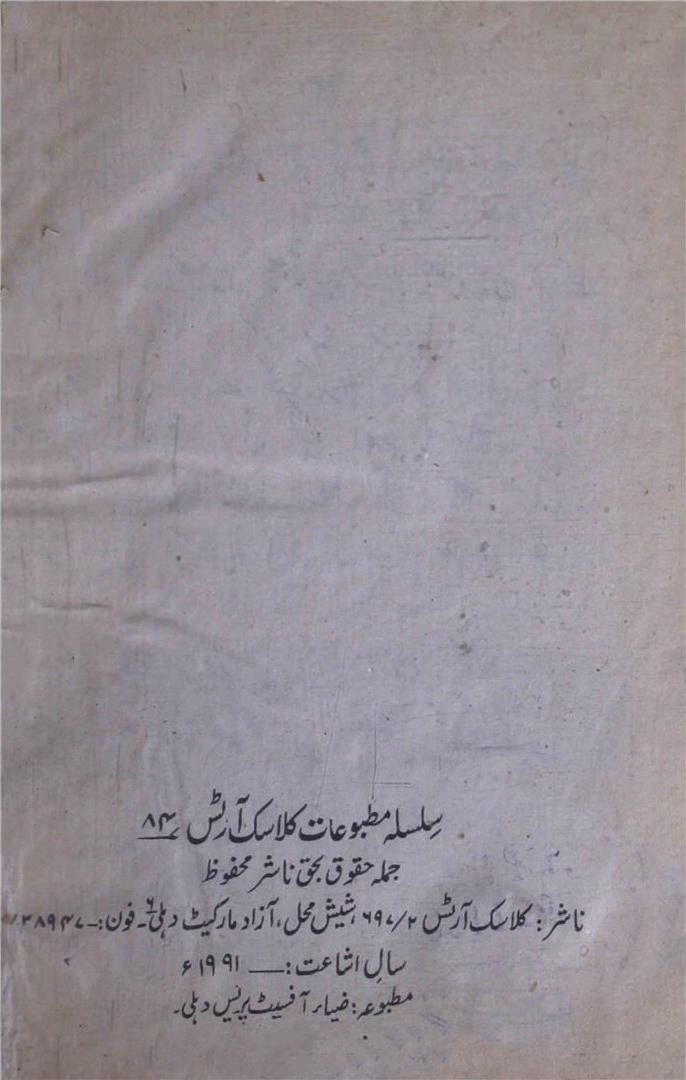 سلسلہ مطبوعات کلاسک آرٹس ۸۴
جملہ حقوق بحق ناشر محفوظ
ناشر: کلاسک آرٹس ۶۹۷/۲، شیش محل، آزاد مارکیٹ دہلی۶۔ فون:۔
سالِ اشاعت:ــــ ۱۹۹۱ء
مطبوعہ: ضیاء آفسیٹ پریس دہلی۔